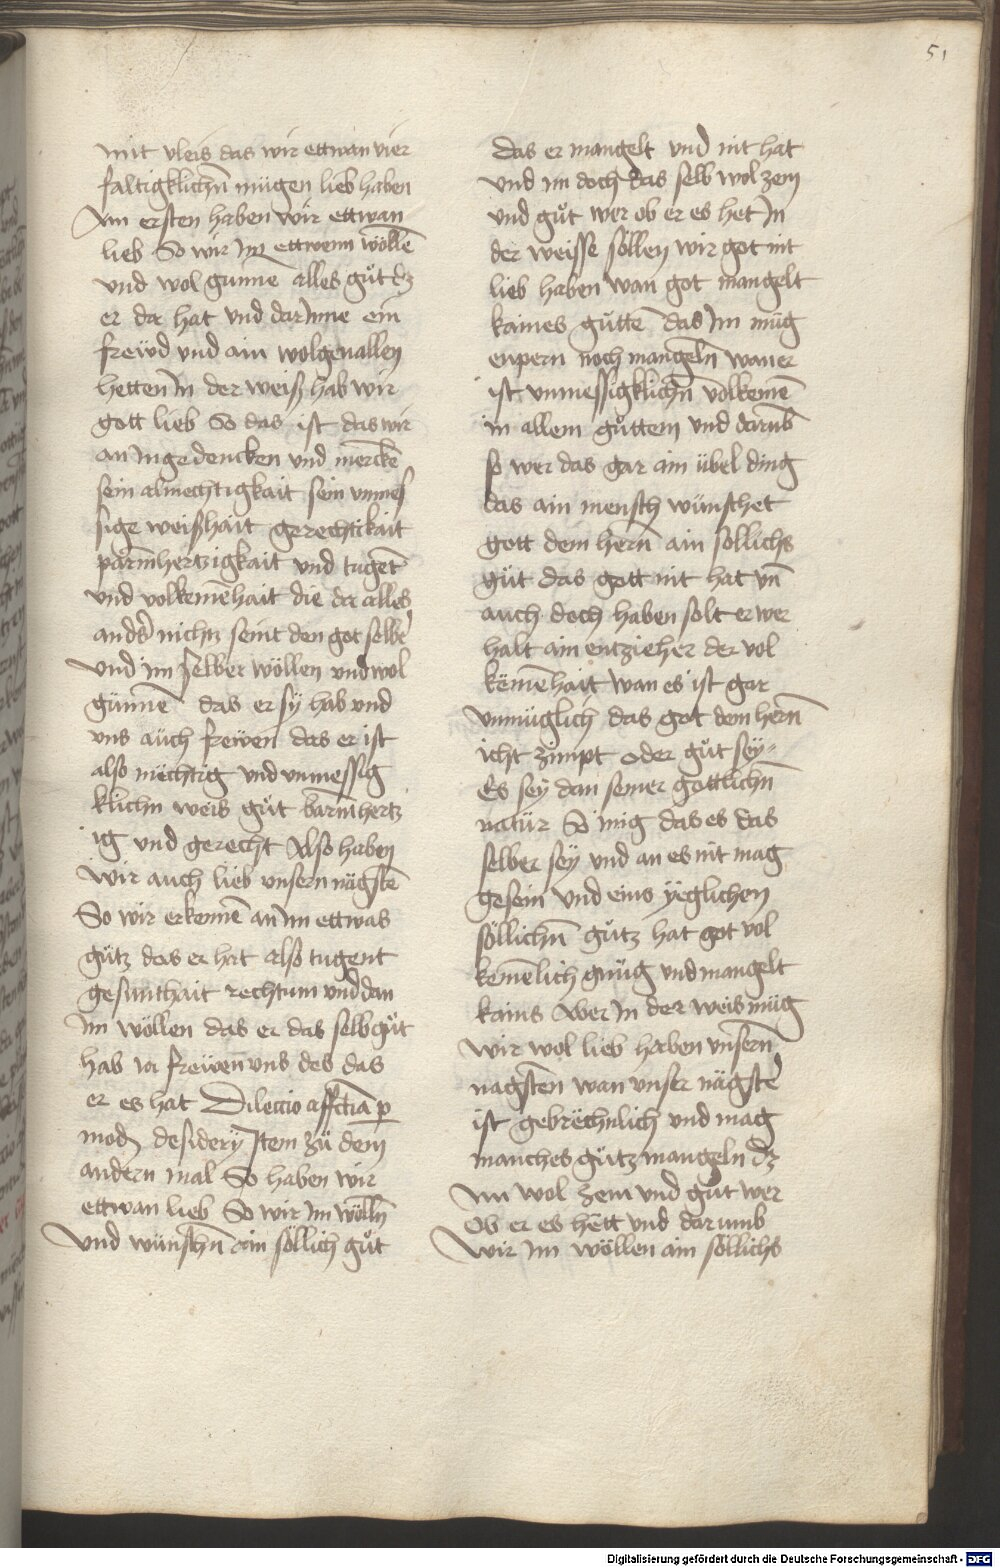 51
mit vleis das wir ettwan vier
faltigklichn̄ mügen lieb haben
Am ersten haben wir ettwan
lieb So wir Im ettwenn wöllē
und wol gunnē alles gu̇t dz
er da hat und darinne ein
frewd und ain wolgenallen
hetten In der weiß hab wir
gott lieb So das ist das wir
an In gedencken und merckē
sein almechtigkait sein unmes
sige weißhait gerechtikait
parmhertzigkait und tugēt
und volkemēhait die da alles
anders nichtz seint den got selber
und im selber wöllen und wol
günnē das er sy hab und
uns auch frewen das er ist
also mëchtig und unmessig
klichn weis gu̇t barmhertz
ig und gerecht Also haben
wir auch lieb unsern nägstē
So wir erkennē an Im ettwas
gu̇tz das er hat also tugent
gesunthait rechtum und dan
Im wöllen das er das selb gu̇t
hab un frewen uns des das
er es hat Dileccio affectiā p
mod desidery Item zü dem
andern mal So haben wir
ettwan lieb So wir Im wölln̄
und wünschn ain söllich gu̇t
das er mangelt und nit hat
und im doch das selb wol zem
und gu̇t wer ob er es het In
der weisse söllen wir got nit
lieb haben wan got mangelt
kaines gu̇ttē das Im müg
enpern noch mangeln wan er
ist unmessigklichn̄ volkemē
in allem gu̇ttem und darūb
so wer das gar ain übel ding
das ain mensch wünschet
gott dem hern̄ ain söllichs
gu̇t das gott nit hat un̄
auch doch haben solt er wer
halt ain entzieher der vol
kemēhait wan es ist gar
unmüglich das got dem hern̄
icht zimpt oder gu̇t sey
Es sey dan seiner gottlichn̄
natür So inig das es das
selber sey und an es nit mag
gesein und eins yeglichen
söllichn̄ gu̇tz hat got vol
kemēlich gnüg und mangelt
kains Aber In der weis müg
wir wol lieb haben unsern̄
nagsten wan unser nägstē
ist gebrëchnlich und mag
manches gu̇tz mangeln dz
im wol zem und gu̇t wer
Ob er es hett und darumb
wir im wöllen ain söllichs
Digitalisierung gefördert durch die Deutsche Forschungsgemeinschaft - DFG